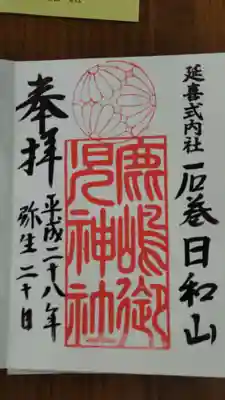 延喜式内社
石巻日和山
鹿嶋御
児神社
奉拝
平成二十八年
弥生二十日